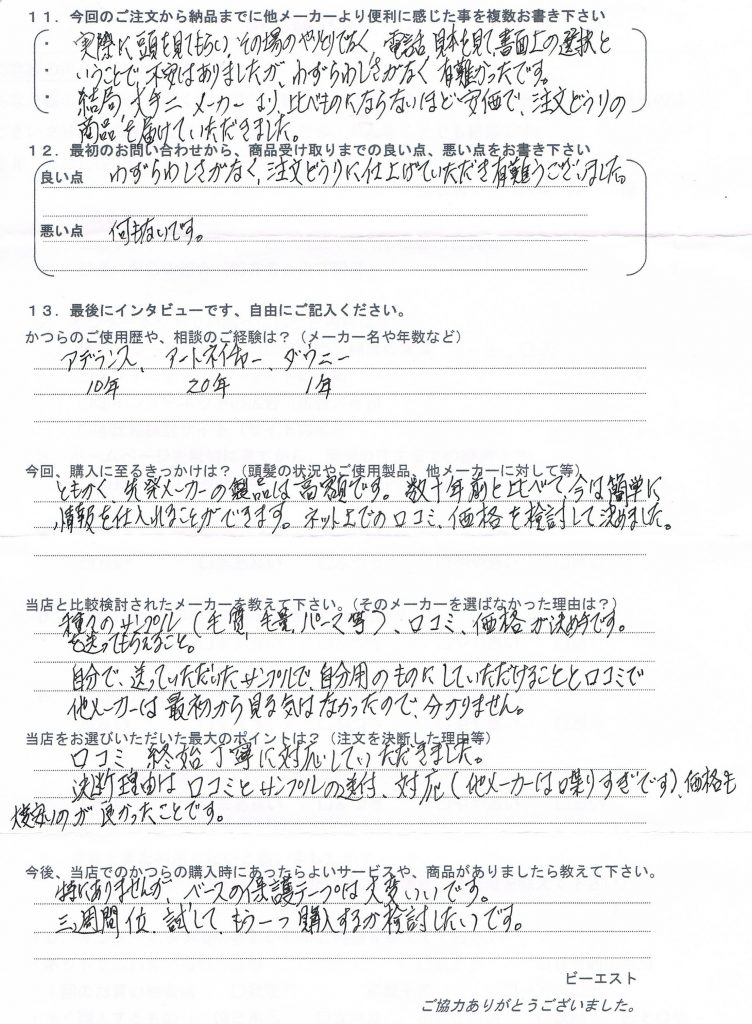 11．今回のご注文から納品までに他メーカーより便利に感じた事を複数お書き下さい
・実際に頭を見てもらい、その場のやりとりでなく、電話、見本を見て、書面上の選択と
・いうことで、不安はありましたが、わずらわしさがなく有難かったです。
・結局、大手二メーカーより、比べものにならないほど安価で、注文どうりの
商品を届けていただきました。
12．最初のお問い合わせから、商品受け取りまでの良い点、悪い点をお書き下さい
良い点 わずらわしさがなく、注文どうりに仕上げていただき有難うございました。
悪い点 何もないです。
13．最後にインタビューです、自由にご記入ください。
かつらのご使用歴や、相談のご経験は？（メーカー名や年数など）
アデランス、アートネイチャー、ダウニー
10年 20年 1年
今回、購入に至るきっかけは？（頭髪の状況やご使用製品、他メーカーに対して等）
ともかく、先発メーカーの製品は高額です。数十年前と比べて、今は簡単に
情報を仕入れることができます。ネット上での口コミ、価格を検討して決めました。
当店と比較検討されたメーカーを教えて下さい。（そのメーカーを選ばなかった理由は？）
種々のサンプル（毛質、毛量、パース等）、口コミ、価格が決め手です。
を送ってもらえること。
自分で、送っていただいたサンプルで、自分用のものにしていただけることと口コミで
他メーカーは最初から見る気はなかったので、分かりません。
当店をお選びいただいた最大のポイントは？（注文を決断した理由等）
口コミ 終始丁寧に対応していただきました。
決断理由は口コミとサンプルの送付、対応（他メーカーは喋りすぎです）、価格も
のが良かったことです。
今後、当店でのかつらの購入時にあったらよいサービスや、商品がありましたら教えて下さい。
特にありませんが、ベースの保護テープは大変いいです。
三週間位、試して、もう一つ購入するか検討したいです。
ビーエスト
ご協力ありがとうございました。